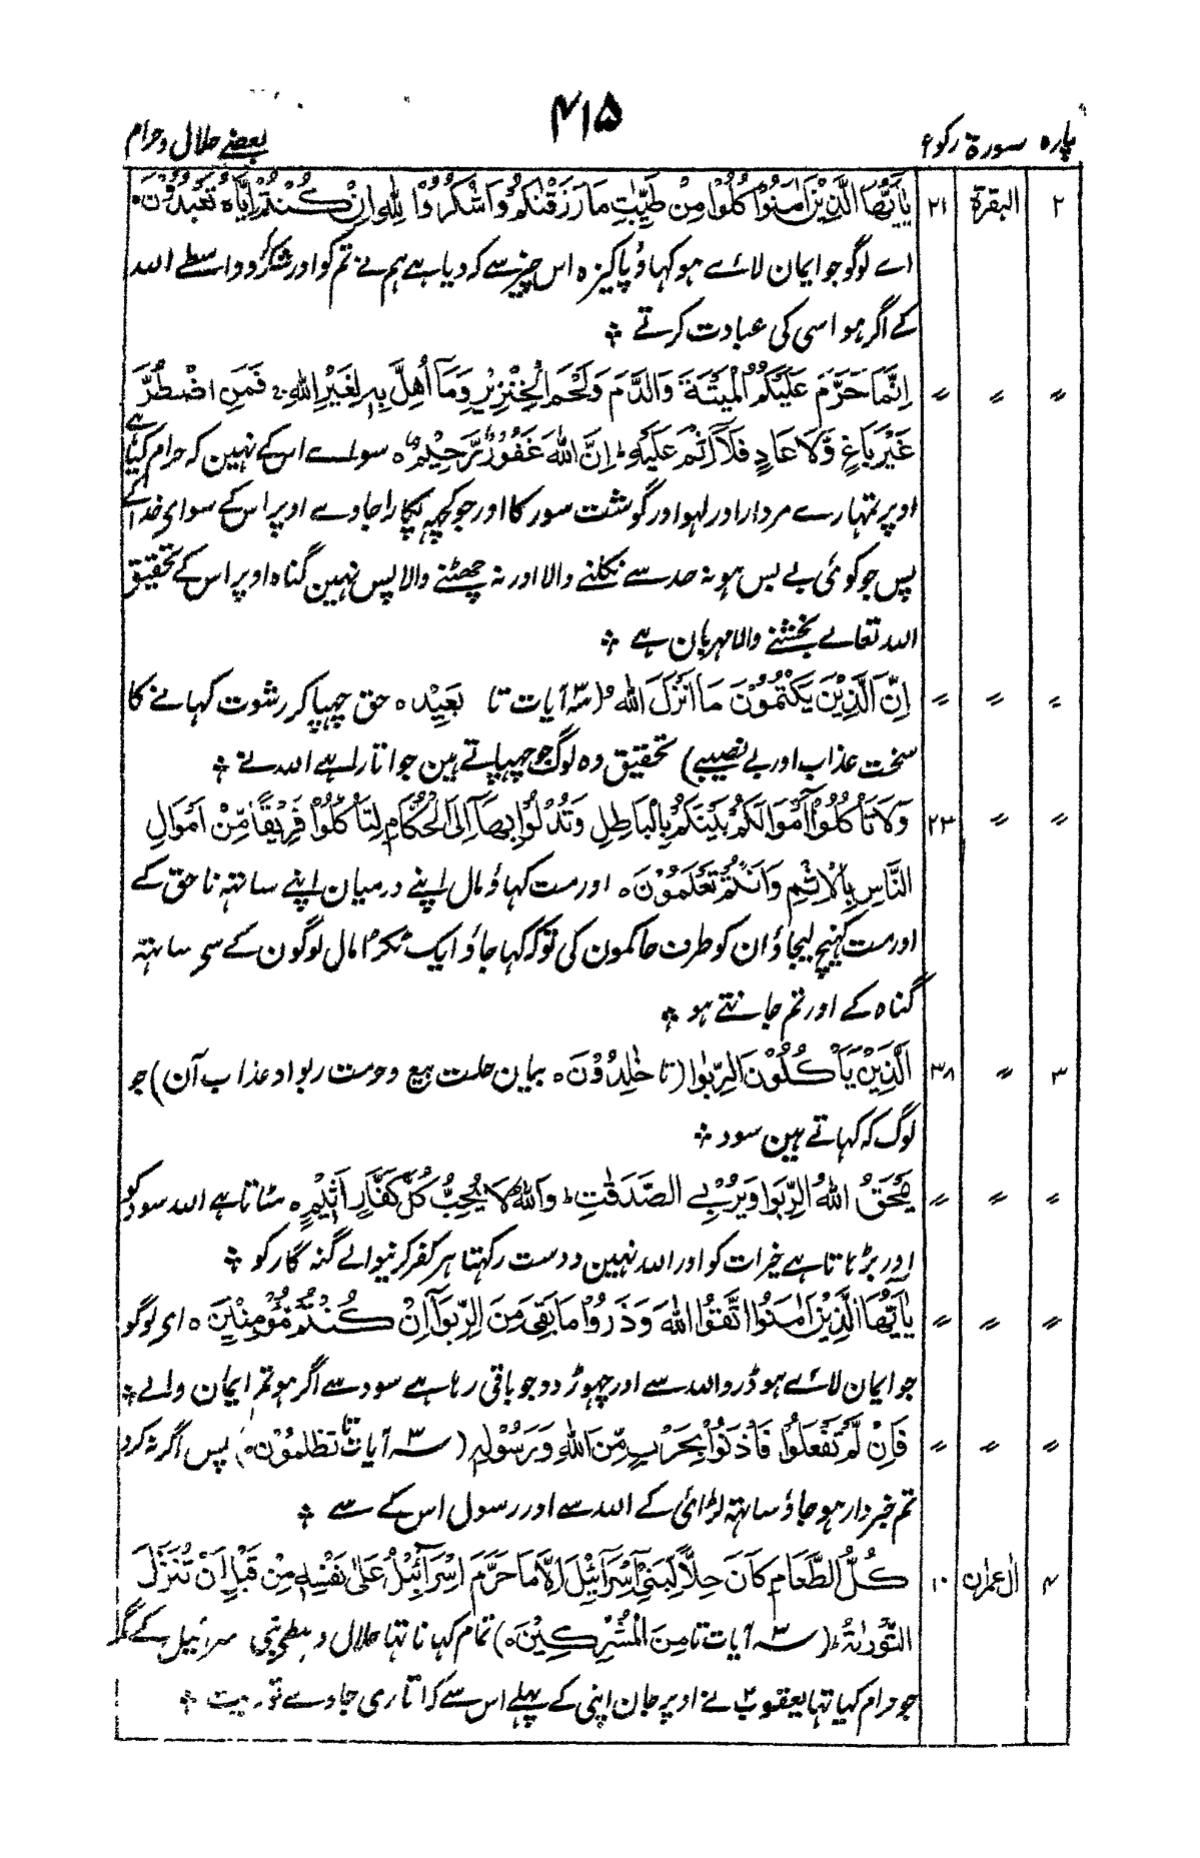 ۴۱۵
پارہ سورۃ رکوع بعضے حلال و حرام
۲ البقرۃ ۲۱ یٰۤاَیُّهَا الَّذِیْنَ اٰمَنُوْا كُلُوْا مِنْ طَیِّبٰتِ مَا رَزَقْنٰكُمْ وَ اشْكُرُوْا لِلّٰهِ اِنْ كُنْتُمْ اِیَّاهُ تَعْبُدُوْنَ ۰
اے لوگو جو ایمان لائے ہو کہاؤ پاکیزہ اس چیز سے کہ دیا ہے ہم نے تم کو اور شکر کرو واسطے اللہ
کے اگر ہو اسی کی عبادت کرتے ۞
〃 〃 〃 اِنَّمَا حَرَّمَ عَلَیْكُمُ الْمَیْتَةَ وَالدَّمَ وَلَحْمَ الْخِنْزِیْرِ وَمَاۤ اُهِلَّ بِهٖ لِغَیْرِ اللّٰهِ ۚ فَمَنِ اضْطُرَّ
غَیْرَ بَاغٍ وَّلَا عَادٍ فَلَاۤ اِثْمَ عَلَیْهِ ؕ اِنَّ اللّٰهَ غَفُوْرٌ رَّحِیْمٌ ۰ سوائے اسکے نہین کہ حرام کیا ہے
اوپر تمہارے مردار اور لہو اور گوشت سور کا اور جو کچہہ پکارا جاوے اوپر اس کے سوای خدا کے
پس جو کوئی بے بس ہو نہ حد سے نکلنے والا اور نہ چھٹنے والا پس نہین گناہ اوپر اس کے تحقیق
اللہ تعالے بخشنے والا مہربان ہے ۞
〃 〃 〃 اِنَّ الَّذِیْنَ یَكْتُمُوْنَ مَاۤ اَنْزَلَ اللّٰهُ (۳ آیات تا بَعِیْدٍ ۰ حق چہپا کر رشوت کہانے کا
سخت عذاب اور بے نصیبی) تحقیق وہ لوگ جو چہپاتے ہین جو اتارا ہے اللہ نے ۞
〃 〃 ۲۳ وَلَا تَاْكُلُوْۤا اَمْوَالَكُمْ بَیْنَكُمْ بِالْبَاطِلِ وَتُدْلُوْا بِهَاۤ اِلَی الْحُكَّامِ لِتَاْكُلُوْا فَرِیْقًا مِّنْ اَمْوَالِ
النَّاسِ بِالْاِثْمِ وَاَنْتُمْ تَعْلَمُوْنَ ۰ اور مت کہاؤ مال اپنے درمیان اپنے ساتہہ ناحق کے
اور مت کہینچ لیجاؤ ان کو طرف حاکمون کی توکہ کہا جاؤ ایک ٹکڑا مال لوگون کے سے ساتہہ
گناہ کے اور تم جانتے ہو ۞
۳ 〃 ۳۸ اَلَّذِیْنَ یَاْكُلُوْنَ الرِّبٰوا (تا خٰلِدُوْنَ ۰ بیان حلت بیع و حرمت ربوا و عذاب آن) جو
لوگ کہ کہاتے ہین سود ۞
〃 〃 〃 یَمْحَقُ اللّٰهُ الرِّبٰوا وَیُرْبِی الصَّدَقٰتِ ؕ وَاللّٰهُ لَا یُحِبُّ كُلَّ كَفَّارٍ اَثِیْمٍ ۰ مٹاتا ہے اللہ سود کو
اور بڑہاتا ہے خیرات کو اور اللہ نہین دوست رکہتا ہر کفر کرنیوالے گنہ گار کو ۞
〃 〃 〃 یٰۤاَیُّهَا الَّذِیْنَ اٰمَنُوا اتَّقُوا اللّٰهَ وَذَرُوْا مَا بَقِیَ مِنَ الرِّبٰۤوا اِنْ كُنْتُمْ مُّؤْمِنِیْنَ ۰ ای لوگو
جو ایمان لائے ہو ڈرو اللہ سے اور چہوڑ دو جو باقی رہا ہے سود سے اگر ہو تم ایمان والے ۞
〃 〃 〃 فَاِنْ لَّمْ تَفْعَلُوْا فَاْذَنُوْا بِحَرْبٍ مِّنَ اللّٰهِ وَرَسُوْلِهٖ (۳ آیات تا تظلمون ۰) پس اگر نہ کرو
تم خبردار ہو جاؤ ساتہہ لڑائی کے اللہ سے اور رسول اس کے سے ۞
۴ اٰل عمرٰن ۱۰ كُلُّ الطَّعَامِ كَانَ حِلًّا لِّبَنِیْۤ اِسْرَآئِیْلَ اِلَّا مَا حَرَّمَ اِسْرَآئِیْلُ عَلٰی نَفْسِهٖ مِنْ قَبْلِ اَنْ تُنَزَّلَ
التَّوْرٰىةُ ؕ (۳ آیات تا مِنَ الْمُشْرِكِیْنَ ۰) تمام کہانا تہا حلال واسطے بنی اسرائیل کے مگر
جو حرام کیا تہا یعقوب نے اوپر جان اپنی کے پہلے اس سے کہ اتاری جاوے توریت ۞